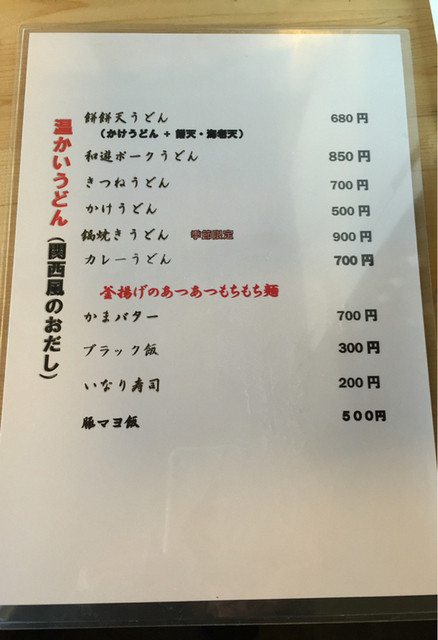 温かいうどん(関西風のおだし)
餅餅天うどん 680円
(かけうどん + 餅天・海老天)
和遊ポークうどん 850円
きつねうどん 700円
かけうどん 500円
鍋焼きうどん 季節限定 900円
カレーうどん 700円
釜揚げのあつあつもちもち麺
かまバター 700円
ブラック飯 300円
いなり寿司 200円
豚マヨ飯 500円